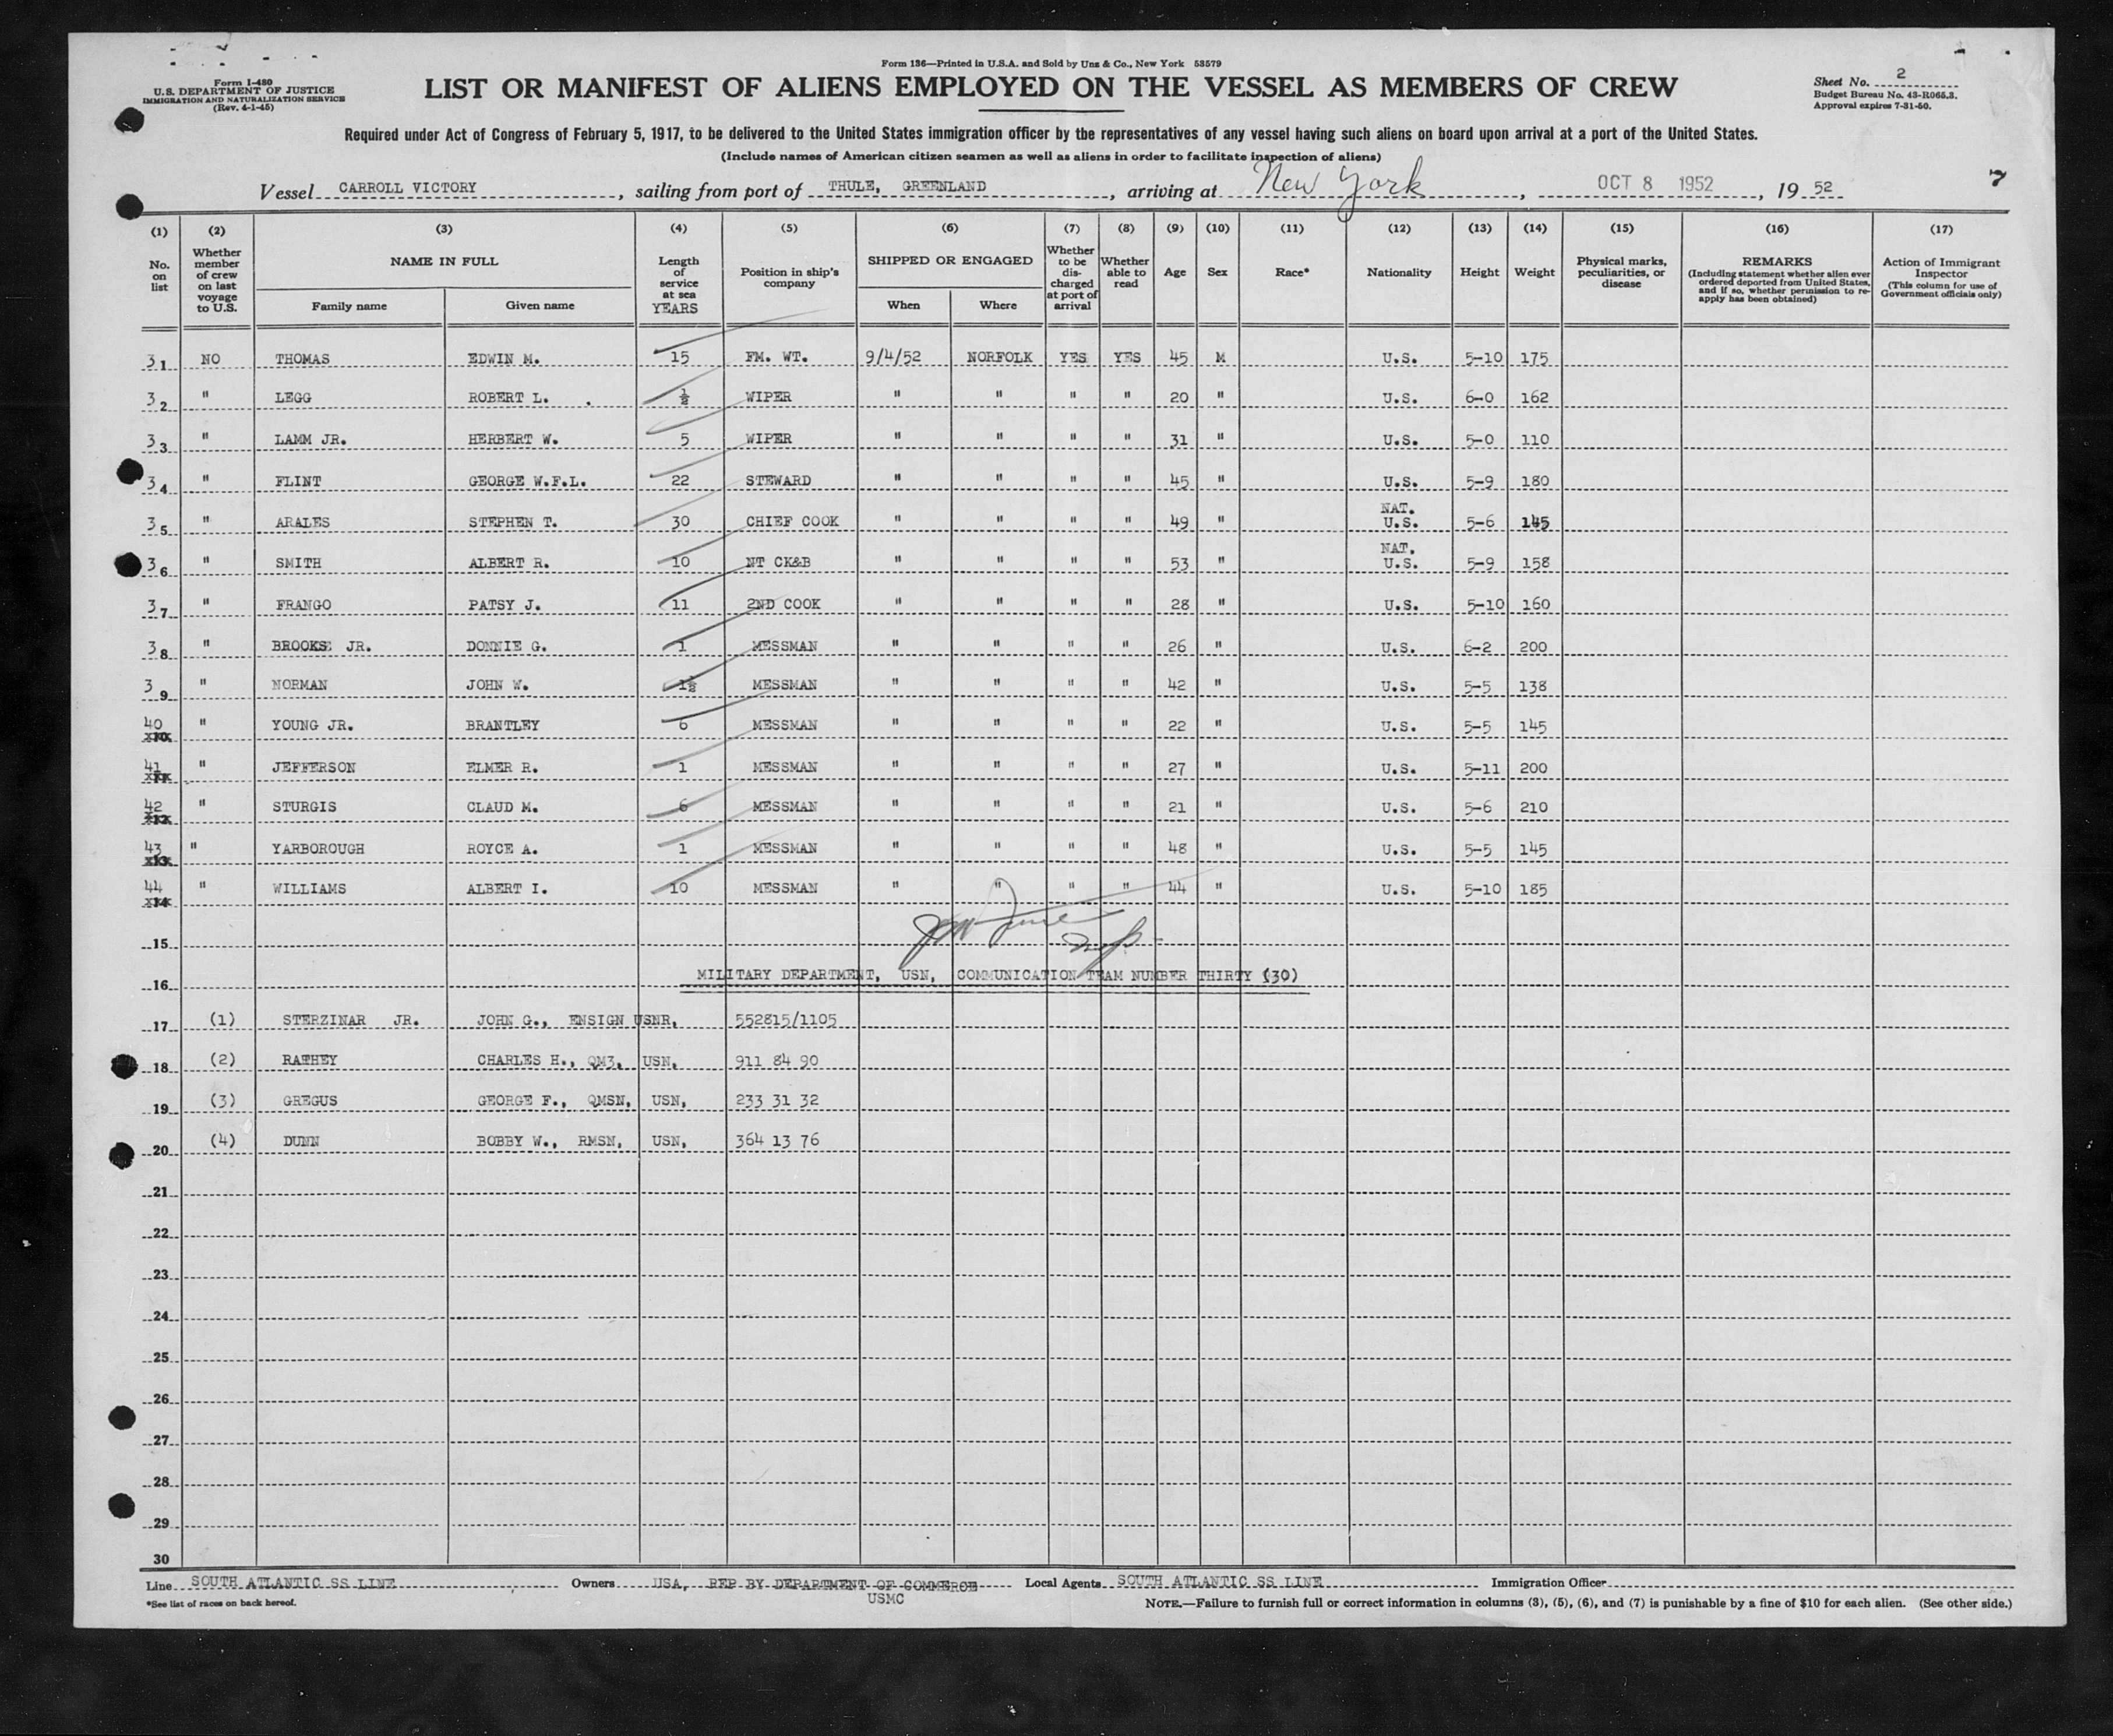 Form I-480
U.S. DEPARTMENT OF JUSTICE
IMMIGRATION AND NATURALIZATION SERVICE
(Rev. 4-1-45)
Form 136—Printed in U.S.A. and Sold by Unz & Co., New York 53579
LIST OR MANIFEST OF ALIENS EMPLOYED ON THE VESSEL AS MEMBERS OF CREW
Sheet No. 2
Budget Bureau No. 43-R065.3.
Approval expires 7-31-50.
Required under Act of Congress of February 5, 1917, to be delivered to the United States immigration officer by the representatives of any vessel having such aliens on board upon arrival at a port of the United States.
(Include names of American citizen seamen as well as aliens in order to facilitate inspection of aliens)
Vessel CARROLL VICTORY, sailing from port of THULE, GREENLAND, arriving at New York, OCT 8 1952, 19 52
7
(1) No. on list
(2) Whether member of crew on last voyage to U.S.
(3) NAME IN FULL Family name Given name
(4) Length of service at sea YEARS
(5) Position in ship's company
(6) SHIPPED OR ENGAGED When Where
(7) Whether to be discharged at port of arrival
(8) Whether able to read
(9) Age
(10) Sex
(11) Race*
(12) Nationality
(13) Height
(14) Weight
(15) Physical marks, peculiarities, or disease
(16) REMARKS (Including statement whether alien ever ordered deported from United States, and if so, whether permission to reapply has been obtained)
(17) Action of Immigrant Inspector (This column for use of Government officials only)
31 NO THOMAS EDWIN M. 15 FM. WT. 9/4/52 NORFOLK YES YES 45 M U.S. 5-10 175
32 " LEGG ROBERT L. . ½ WIPER " " " " 20 " U.S. 6-0 162
33 " LAMM JR. HERBERT W. 5 WIPER " " " " 31 " U.S. 5-0 110
34 " FLINT GEORGE W.F.L. 22 STEWARD " " " " 45 " U.S. 5-9 180
35 " ARALES STEPHEN T. 30 CHIEF COOK " " " " 49 " NAT. U.S. 5-6 145
36 " SMITH ALBERT R. 10 NT CK&B " " " " 53 " NAT. U.S. 5-9 158
37 " FRANGO PATSY J. 11 2ND COOK " " " " 28 " U.S. 5-10 160
38 " BROOKS JR. DONNIE G. 1 MESSMAN " " " " 26 " U.S. 6-2 200
39 " NORMAN JOHN W. 1½ MESSMAN " " " " 42 " U.S. 5-5 138
40 " YOUNG JR. BRANTLEY 6 MESSMAN " " " " 22 " U.S. 5-5 145
41 " JEFFERSON ELMER R. 1 MESSMAN " " " " 27 " U.S. 5-11 200
42 " STURGIS CLAUD M. 6 MESSMAN " " " " 21 " U.S. 5-6 210
43 " YARBOROUGH ROYCE A. 1 MESSMAN " " " " 48 " U.S. 5-5 145
44 " WILLIAMS ALBERT I. 10 MESSMAN " " " " 44 " U.S. 5-10 185
15
16 MILITARY DEPARTMENT, USN, COMMUNICATION TEAM NUMBER THIRTY (30)
17 (1) STERZINAR JR. JOHN G., ENSIGN USNR, 552815/1105
18 (2) RATHEY CHARLES H., QM3, USN, 911 84 90
19 (3) GREGUS GEORGE F., QMSN, USN, 233 31 32
20 (4) DUNN BOBBY W., RMSN, USN, 364 13 76
21
22
23
24
25
26
27
28
29
30
Line SOUTH ATLANTIC SS LINE Owners USA, REP BY DEPARTMENT OF COMMERCE Local Agents SOUTH ATLANTIC SS LINE Immigration Officer
USMC
*See list of races on back hereof.
NOTE.—Failure to furnish full or correct information in columns (3), (5), (6), and (7) is punishable by a fine of $10 for each alien. (See other side.)